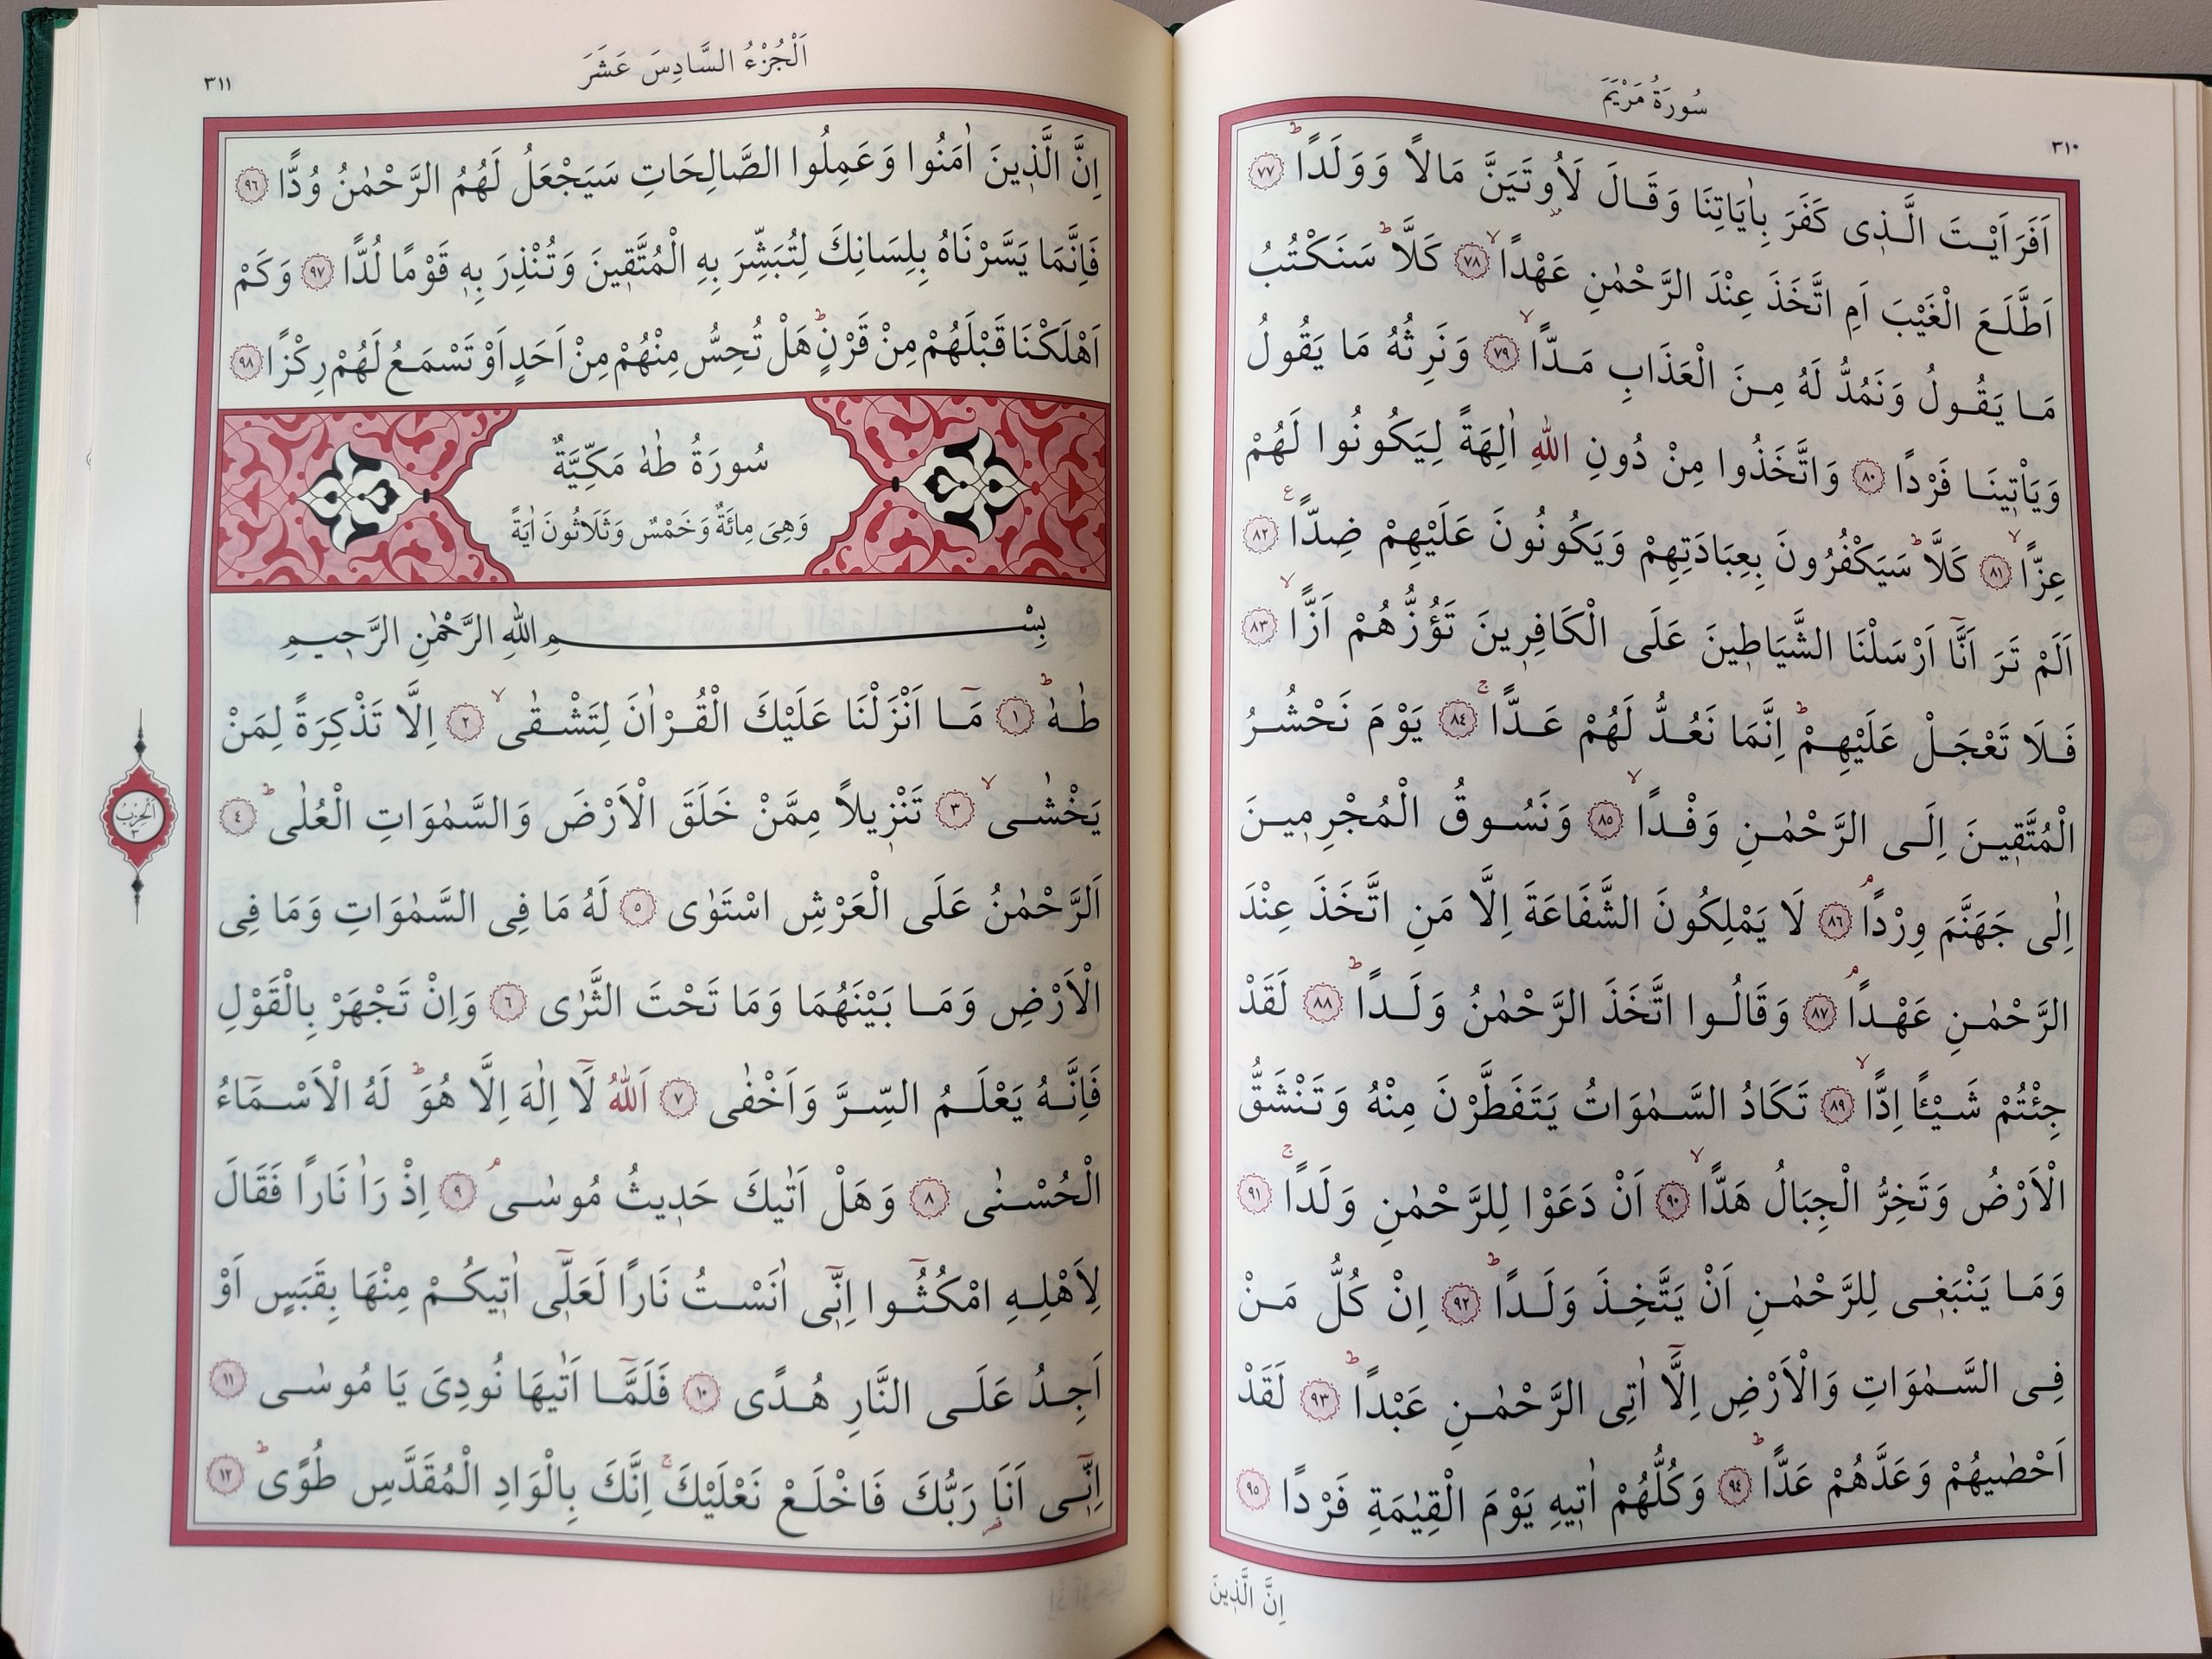 سُورَةُ مَرْيَمَ
٣١٠
اَفَرَاَيْتَ الَّذ۪ى كَفَرَ بِاٰيَاتِنَا وَقَالَ لَاُو۫تَيَنَّ مَالاً وَوَلَدًاۜ ﴿٧٧﴾
اَطَّلَعَ الْغَيْبَ اَمِ اتَّخَذَ عِنْدَ الرَّحْمٰنِ عَهْدًاۙ ﴿٧٨﴾ كَلَّاۜ سَنَكْتُبُ
مَا يَقُولُ وَنَمُدُّ لَهُ مِنَ الْعَذَابِ مَدًّاۙ ﴿٧٩﴾ وَنَرِثُهُ مَا يَقُولُ
وَيَأْت۪ينَا فَرْدًا ﴿٨٠﴾ وَاتَّخَذُوا مِنْ دُونِ اللّٰهِ اٰلِهَةً لِيَكُونُوا لَهُمْ
عِزًّاۙ ﴿٨١﴾ كَلَّاۜ سَيَكْفُرُونَ بِعِبَادَتِهِمْ وَيَكُونُونَ عَلَيْهِمْ ضِدًّا ع ﴿٨٢﴾
اَلَمْ تَرَ اَنَّٓا اَرْسَلْنَا الشَّيَاط۪ينَ عَلَى الْكَافِر۪ينَ تَؤُزُّهُمْ اَزًّاۙ ﴿٨٣﴾
فَلَا تَعْجَلْ عَلَيْهِمْۜ اِنَّمَا نَعُدُّ لَهُمْ عَدًّاۚ ﴿٨٤﴾ يَوْمَ نَحْشُرُ
الْمُتَّق۪ينَ اِلَى الرَّحْمٰنِ وَفْدًاۙ ﴿٨٥﴾ وَنَسُوقُ الْمُجْرِم۪ينَ
اِلٰى جَهَنَّمَ وِرْدًاۢ ﴿٨٦﴾ لَا يَمْلِكُونَ الشَّفَاعَةَ اِلَّا مَنِ اتَّخَذَ عِنْدَ
الرَّحْمٰنِ عَهْدًاۢ ﴿٨٧﴾ وَقَالُوا اتَّخَذَ الرَّحْمٰنُ وَلَدًاۜ ﴿٨٨﴾ لَقَدْ
جِئْتُمْ شَيْـًٔا اِدًّاۙ ﴿٨٩﴾ تَكَادُ السَّمٰوَاتُ يَتَفَطَّرْنَ مِنْهُ وَتَنْشَقُّ
الْاَرْضُ وَتَخِرُّ الْجِبَالُ هَدًّاۙ ﴿٩٠﴾ اَنْ دَعَوْا لِلرَّحْمٰنِ وَلَدًاۚ ﴿٩١﴾
وَمَا يَنْبَغ۪ى لِلرَّحْمٰنِ اَنْ يَتَّخِذَ وَلَدًاۜ ﴿٩٢﴾ اِنْ كُلُّ مَنْ
فِى السَّمٰوَاتِ وَالْاَرْضِ اِلَّٓا اٰتِى الرَّحْمٰنِ عَبْدًاۜ ﴿٩٣﴾ لَقَدْ
اَحْصٰيهُمْ وَعَدَّهُمْ عَدًّاۜ ﴿٩٤﴾ وَكُلُّهُمْ اٰت۪يهِ يَوْمَ الْقِيٰمَةِ فَرْدًا ﴿٩٥﴾
اِنَّ الَّذ۪ينَ
اَلْجُزْءُ السَّادِسَ عَشَرَ
٣١١
اِنَّ الَّذ۪ينَ اٰمَنُوا وَعَمِلُوا الصَّالِحَاتِ سَيَجْعَلُ لَهُمُ الرَّحْمٰنُ وُدًّا ﴿٩٦﴾
فَاِنَّمَا يَسَّرْنَاهُ بِلِسَانِكَ لِتُبَشِّرَ بِهِ الْمُتَّق۪ينَ وَتُنْذِرَ بِه۪ قَوْمًا لُدًّا ﴿٩٧﴾ وَكَمْ
اَهْلَكْنَا قَبْلَهُمْ مِنْ قَرْنٍۜ هَلْ تُحِسُّ مِنْهُمْ مِنْ اَحَدٍ اَوْ تَسْمَعُ لَهُمْ رِكْزًا ﴿٩٨﴾
سُورَةُ طٰهٰ مَكِّيَّةٌ
وَهِىَ مِائَةٌ وَخَمْسٌ وَثَلَاثُونَ اٰيَةً
بِسْمِ اللّٰهِ الرَّحْمٰنِ الرَّح۪يمِ
طٰهٰۜ ﴿١﴾ مَٓا اَنْزَلْنَا عَلَيْكَ الْقُرْاٰنَ لِتَشْقٰىۙ ﴿٢﴾ اِلَّا تَذْكِرَةً لِمَنْ
يَخْشٰىۙ ﴿٣﴾ تَنْز۪يلاً مِمَّنْ خَلَقَ الْاَرْضَ وَالسَّمٰوَاتِ الْعُلٰىۜ ﴿٤﴾
اَلرَّحْمٰنُ عَلَى الْعَرْشِ اسْتَوٰى ﴿٥﴾ لَهُ مَا فِى السَّمٰوَاتِ وَمَا فِى
الْاَرْضِ وَمَا بَيْنَهُمَا وَمَا تَحْتَ الثَّرٰى ﴿٦﴾ وَاِنْ تَجْهَرْ بِالْقَوْلِ
فَاِنَّهُ يَعْلَمُ السِّرَّ وَاَخْفٰى ﴿٧﴾ اَللّٰهُ لَٓا اِلٰهَ اِلَّا هُوَۜ لَهُ الْاَسْمَٓاءُ
الْحُسْنٰى ﴿٨﴾ وَهَلْ اَتٰيكَ حَد۪يثُ مُوسٰىۢ ﴿٩﴾ اِذْ رَاٰ نَارًا فَقَالَ
لِاَهْلِهِ امْكُثُٓوا اِنّ۪ٓى اٰنَسْتُ نَارًا لَعَلّ۪ٓى اٰت۪يكُمْ مِنْهَا بِقَبَسٍ اَوْ
اَجِدُ عَلَى النَّارِ هُدًى ﴿١٠﴾ فَلَمَّٓا اَتٰيهَا نُودِىَ يَا مُوسٰى ﴿١١﴾
اِنّ۪ٓى اَنَا۬ رَبُّكَ فَاخْلَعْ نَعْلَيْكَۚ اِنَّكَ بِالْوَادِ الْمُقَدَّسِ طُوًىۜ ﴿١٢﴾
اَلْحِزْبُ
٣